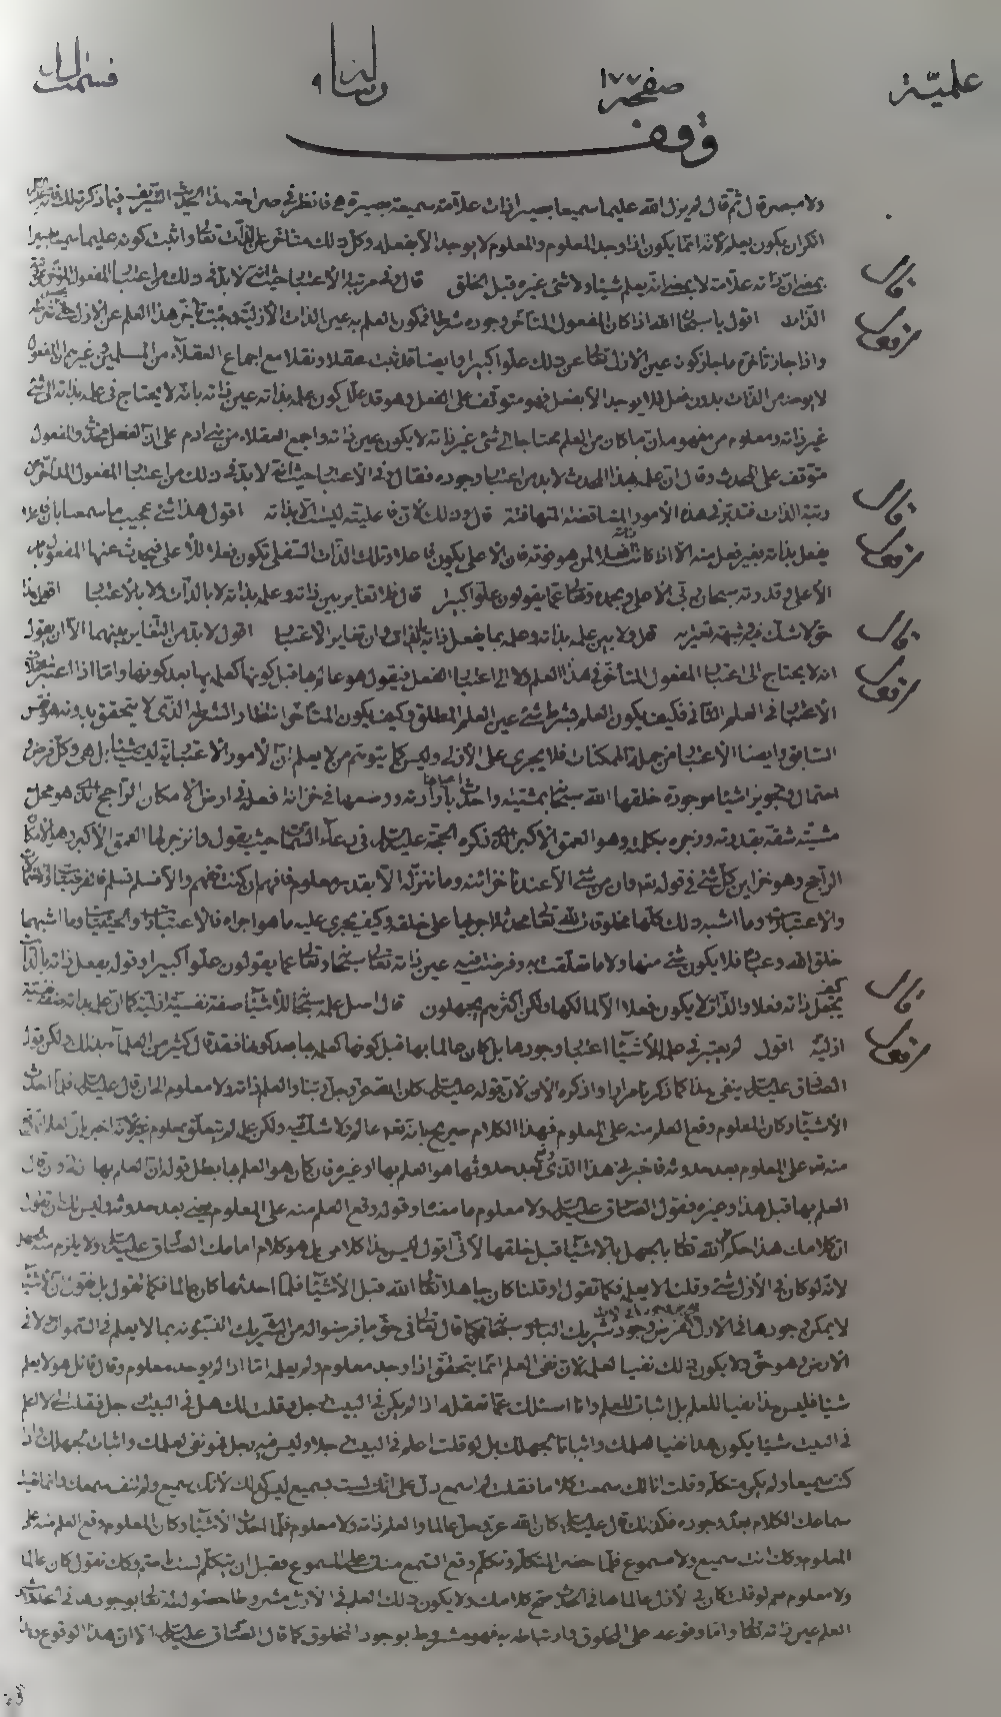 علميّة صفحه ١٧٧ رساله ٩ قسمت اول
وقف
ولا مبصرة قال ثم قال لم يزل الله عليما سميعا بصيرا ذات علامة سميعة بصيرة فانظر في صراحة هذا الحديث الشريف فيما ذكرت لك
انكر ان يكون يعلم لأنه انما يكون اذا وجد المعلوم والمعلوم لا يوجد الا بفعله وكل ذلك متأخر عن الذات تعالى واثبت كونه عليما سميعا بصيرا
بمعنى ان ذاته علامة لا بمعنى انه يعلم شيئا ولا شئ غيره قبل الخلق قال
قال
الذات اقول يا سبحان الله اذا كان المفعول المتأخر وجوده شرطا فكون العلم به عين الذات الأزلية وجب تأخر هذا العلم عن الازل
اقول
واذا جاز تأخره ما جاز كونه عين الازل تعالى عن ذلك علوا كبيرا وايضا قد ثبت عقلا ونقلا مع اجماع العقلاء من المسلمين وغيرهم ان المفعول
لا يوجد من الذات بدون فعل فلا يوجد الا بفعل فهو متوقف على الفعل وهو قد علل كون علمه بذاته عين ذاته بانه لا يحتاج في علمه بذاته الى شئ
غير ذاته ومعلوم من مفهومه ان ما كان من العلم محتاجا الى شئ غير ذاته لا يكون عين ذاته واجمع العقلاء من بني ادم على ان الفعل محدث والمفعول
متوقف على المحدث وقال ان علمه بهذا المحدث لا بد من اعتبار وجوده فقال في الاعتبار حيث انه لا بد في ذلك من اعتبار المفعول المتأخر عن
رتبة الذات فتدبر في هذه الأمور المتناقضة المتهافتة قال وذلك لأن فاعليته ليست الا بذاته اقول هذا شئ عجيب ما سمعنا بان فاعلا
قال
يفعل بذاته بغير فعل منه الا اذا كانت ذاته فعلا لمن هو فوقه فان الأعلى يكون فاعلا وتلك الذات السفلى تكون فعلا للأعلى
اقول
الأعلى وقدرته سبحان ربي الأعلى وبحمده وتعالى عما يقولون علوا كبيرا قال فلا تغاير بين ذاته وعلمه بذاته لا بالذات ولا بالاعتبار اقول
حق لا شك فيه ولا شبهة تعتريه قال ولا بين علمه بذاته وعلمه بما يفعل ذاته بالذات وان تغاير الاعتبار اقول لا بد من التغاير بينهما الا ان يقول
قال
انه لا يحتاج الى اعتبار المفعول المتأخر في هذا العلم ولا الى اعتبار الفعل فيقول هو عالم بها قبل كونها كعلمه بها بعد كونها واما اذا اعتبر
اقول
الأعتبار في العلم الثاني فكيف يكون العلم بشرط شئ عين العلم المطلق وكيف يكون المتأخر انتظار الشرط الذي لا يتحقق بدونه هو نفس
السابق وايضا الاعتبار من جملة الممكنات فلا يجري على الأزل وليس كما يتوهم من لا يعلم ان الأمور الاعتبارية ليست شيئا بل هي وكل فرض و
احتمال وتجويز اشياء موجودة خلقها الله سبحانه بمشيته واحدثها بارادته ووضعها في خزانة فعله في ارض الامكان الراجح الذي هو محل
مشيته شقه بقدرته وزجره بكلمته وهو العمق الاكبر الذي ذكره الحجة عليه السلام في دعاء السمات حيث يقول وانزجر لها العمق الأكبر وهو الامكان
الراجح وهو خزاين كل شئ في قوله تعالى وان من شئ الا عندنا خزائنه وما ننزله الا بقدر معلوم فافهم ان كنت تفهم والا فسلم تسلم
والاعتبارات وما اشبه ذلك كلها مخلوقات لله تعالى محدثة اجراها على خلقه وكيف يجري عليه ما هو اجراه فالاعتبارات والحيثيات وما اشبهها
خلق الله وعباده فلا يكون شئ منها ولا ما تعلقت به وفرضت فيه عين ذاته تعالى سبحانه وتعالى عما يقولون علوا كبيرا وقوله يفعل ذاته بالذات
كيف يجعل ذاته فعلا والذات لا يكون فعلا الا لمالكها ولكن اكثرهم يجهلون قال اصل علمه سبحانه للأشياء صفة نفسية ازلية كما ان علمه بذاته صفة نفسية
قال
ازلية اقول لم يعتبر في علمه للأشياء اعتبار وجودها بل كان عالما بها قبل كونها كعلمه بها بعد كونها فقد قال كثير من العلماء بذلك ولكن قول
اقول
الصادق عليه السلام ينفي هذا كما ذكرنا مرارا واذكره الآن لان قوله عليه السلام كان الله عز وجل ربنا والعلم ذاته ولا معلوم الى ان قال عليه السلام فلما احدث
الأشياء وكان المعلوم وقع العلم منه على المعلوم فهذا الكلام صريح بانه تعالى عالم ولا شك فيه ولكن علمه لم يتعلق بمعلوم
منه تعالى على المعلوم بعد حدوثه فاخبرني هذا الذي وقع بعد حدوثها هو العلم بها او غيره فان كان هو العلم بها بطل قوله ان العلم بها
العلم بها قبل هذا وغيره فقول الصادق عليه السلام ولا معلوم ما معناه وقوله وقع العلم منه على المعلوم يعني بعد حدوثه وليس لك ان تقول
ان كلامك هذا حكم على الله تعالى بالجهل بالاشياء قبل خلقها لأني اقول ليس هذا كلامي بل هو كلام امامك الصادق عليه السلام ولا يلزم منه الجهل
لانه لو كان في الأزل شئ وقلنا لا يعلم فكما تقول او قلنا كان جاهلا تعالى الله قبل الأشياء فلما احدثها كان عالما فكما تقول بل نقول ان الأشياء
لا يمكن وجودها في الأزل كفرض وجود شريك البارئ سبحانه كما قال تعالى في حق ما فرضوا له من الشريك اتنبؤنه بما لا يعلم في السموات ولا في
الارض وهو حق ولا يكون ذلك نفيا لعلمه لان نفي العلم انما يتحقق اذا وجد معلوم ولم يعلم اما اذا لم يوجد معلوم وقال قائل هو لا يعلم
شيئا فليس هذا نفيا للعلم بل اثبات للعلم وانا اسئلك عما تعقله اذا لم يكن في البيت رجل وقلت لك هل في البيت رجل فقلت لا اعلم
في البيت شيئا يكون هذا نفيا لعلمك واثباتا لجهلك بل لو قلت اعلم في البيت رجلا وليس فيه رجل فهو نفي لعلمك واثبات لجهلك اذا
كنت سميعا ولم يكن متكلم وقلت انا لك سمعت كلاما فقلت لم اسمع دل على انك لست بسميع ليس كذلك لأنك سميع ولم تنف سمعك وانما نفيت
سماعك الكلام بعدم وجوده فكذلك قال عليه السلام كان الله عز وجل عالما والعلم ذاته ولا معلوم فلما احدث الأشياء وكان المعلوم وقع العلم منه على
المعلوم وكان انت سميع ولا مسموع فلما حضر المتكلم وتكلم وقع السمع منك على المسموع فقبل ان يتكلم لست بأصم وكان تقول كان عالما
ولا معلوم نعم لو قلت كان في الأزل عالما بها في الحدث صح كلامك ولا يكون ذلك العلم في الأزل مشروطا
العلم عين ذاته تعالى وانما وقوعه على المخلوق وارتباطه به فهو مشروط بوجود المخلوق كما قال الصادق عليه السلام الا ان هذا الوقوع